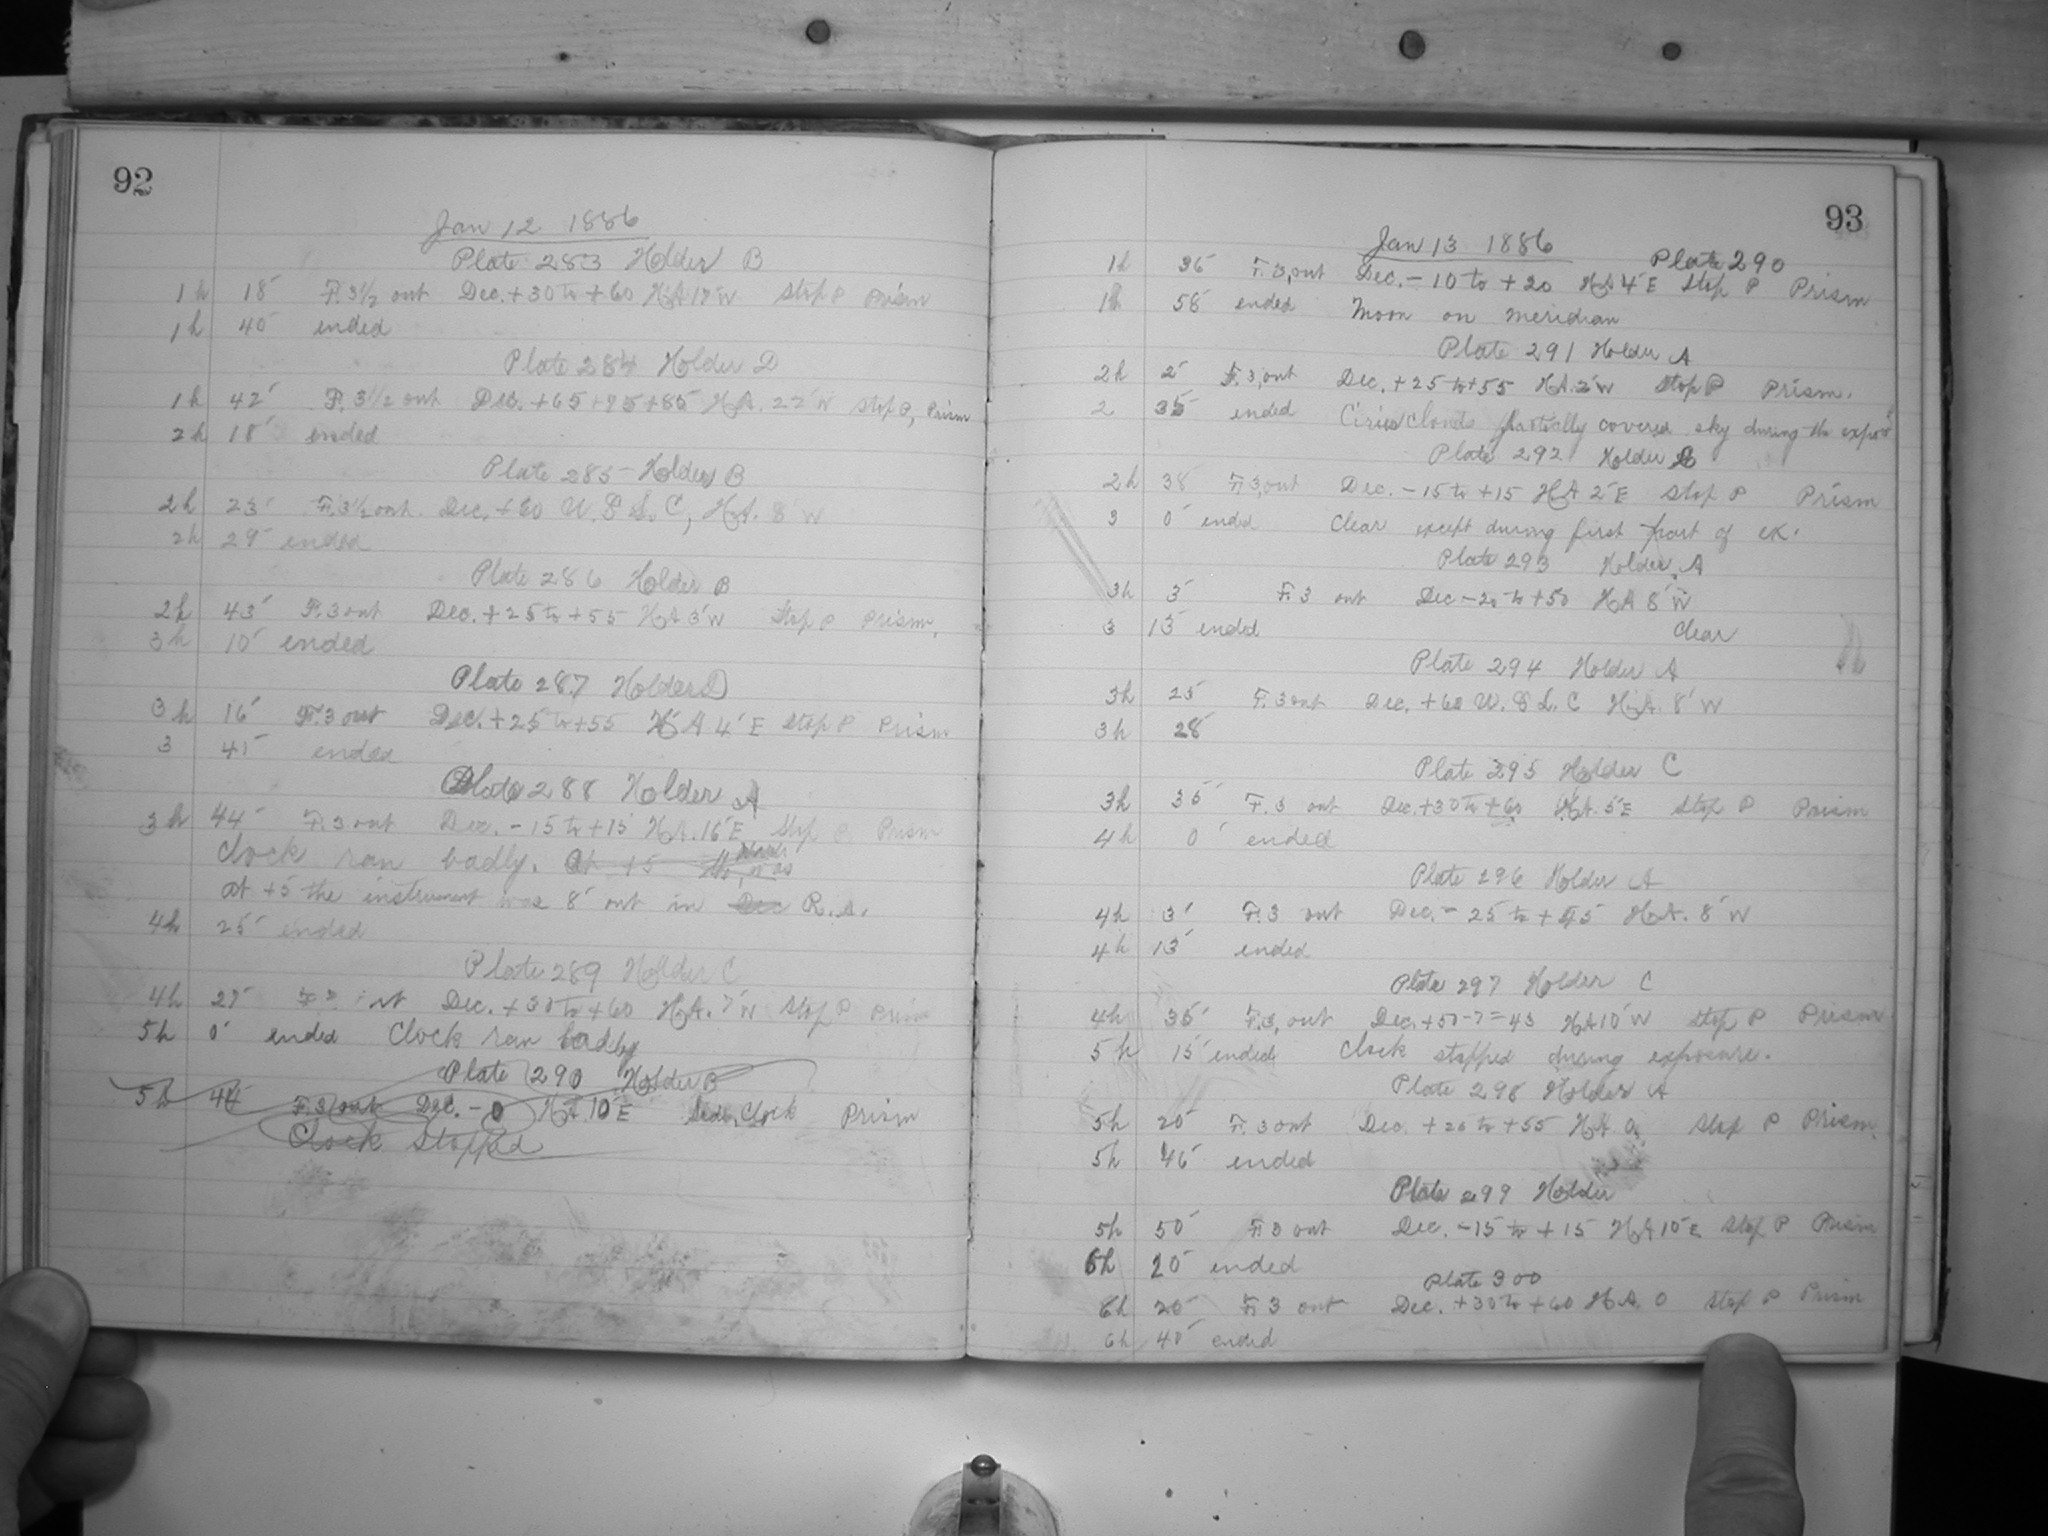 92
Jan 12 1886
Plate 283 Holder B
1h 18' F. 3 1/2 out Dec. +30 to +60 HA 17' W Stop P Prism
1h 40' ended
Plate 284 Holder D
1h 42' F. 3 1/2 out Dec. +65 +75 +85 HA. 22' W Stop P, Prism
2h 18' ended
Plate 285 Holder B
2h 23' F. 3 1/2 out. Dec. +60 U. & L. C, HA. 8' W
2h 29' ended
Plate 286 Holder B
2h 43' F. 3 out Dec. +25 to +55 HA 3' W Stop P Prism.
3h 10' ended
Plate 287 Holder D
3h 16' F. 3 out Dec. +25 to +55 HA 4' E Stop P Prism
3 41' ended
Plate 288 Holder A
3h 44' F. 3 out Dec. -15 to +15 HA. 16' E Stop P Prism
Clock ran badly. At +5
at +5 the instrument was 8' out in Dec R.A.
4h 25' ended
Plate 289 Holder C
4h 27' F 3 out Dec. +30 to +60 HA. 7' W Stop P Prism
5h 0' ended Clock ran badly
Plate 290 Holder B
5h 44' F. 3 out Dec. -0 HA. 10' E Clock Prism
Clock Stopped
93
Jan 13 1886 Plate 290
1h 36' F. 3, out Dec. -10 to +20 HA 4' E Stop P Prism
1h 58' ended Moon on Meridian
Plate 291 Holder A
2h 2' F. 3, out Dec. +25 to +55 HA. 2' W Stop P Prism.
2 35' ended Cirius Clouds partially covered sky during the expos
Plate 292 Holder
2h 38' F. 3, out Dec. -15 to +15 HA 2' E Stop P Prism
3 0' ended Clear except during first part of ex.
Plate 293 Holder A
3h 3' F. 3 out Dec -20 to +50 HA 8' W
3 13' ended Clear
Plate 294 Holder A
3h 25' F. 3 out Dec. +60 U. & L. C HA. 8' W
3h 28'
Plate 295 Holder C
3h 35' F. 3 out Dec. +30 to +60 HA. 5' E Stop P Prism
4h 0' ended
Plate 296 Holder A
4h 3' F. 3 out Dec. -25 to +45 HA. 8' W
4h 13' ended
Plate 297 Holder C
4h 35' F. 3, out Dec. +50-7=43 HA 10' W Stop P Prism
5h 15' ended Clock stopped during exposure.
Plate 298 Holder A
5h 20' F. 3 out Dec. +25 to +55 HA 0, Stop P Prism.
5h 45' ended
Plate 299 Holder
5h 50' F. 3 out Dec. -15 to +15 HA 10' E Stop P Prism
6h 20' ended
Plate 300
6h 20' F. 3 out Dec. +30 to +60 HA. 0 Stop P Prism
6h 40' ended